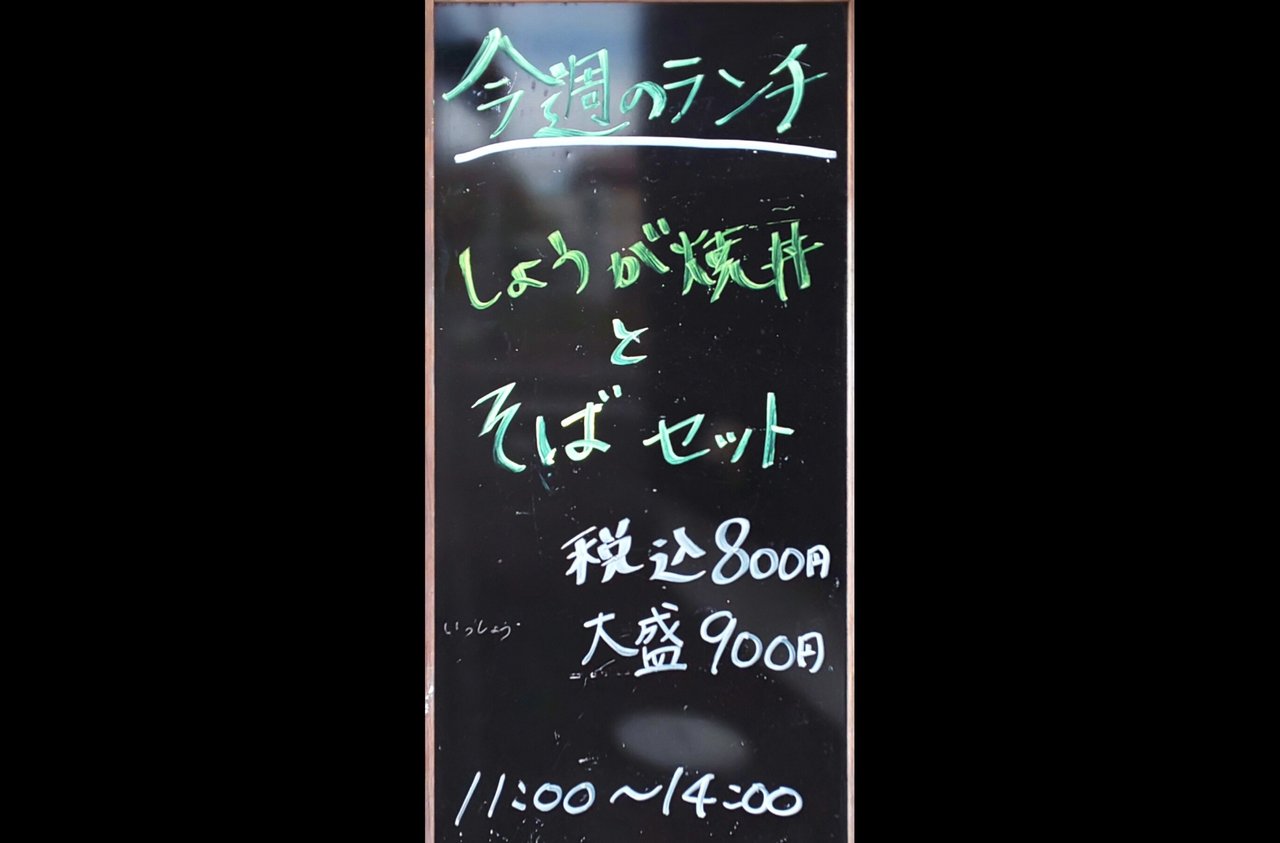 今週のランチ
しょうが焼丼
と
そばセット
税込800円
大盛900円
いっしょう
11:00～14:00